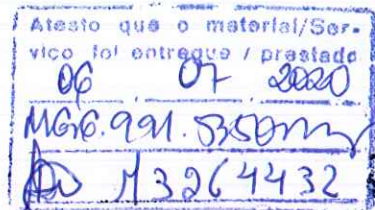 Atesto que o material/Ser-
viço foi entregue / prestado
06 07 2020
M 3264432